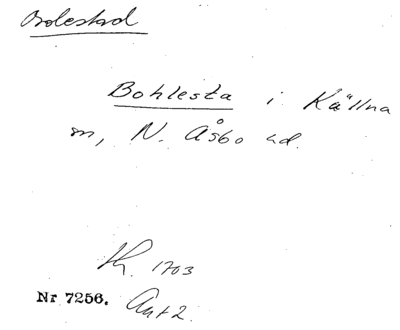 Bolestad
Bohlesta i Källna
sn, N. Åsbo hd.
Lh. 1703
Nr 7256. Ant 2.